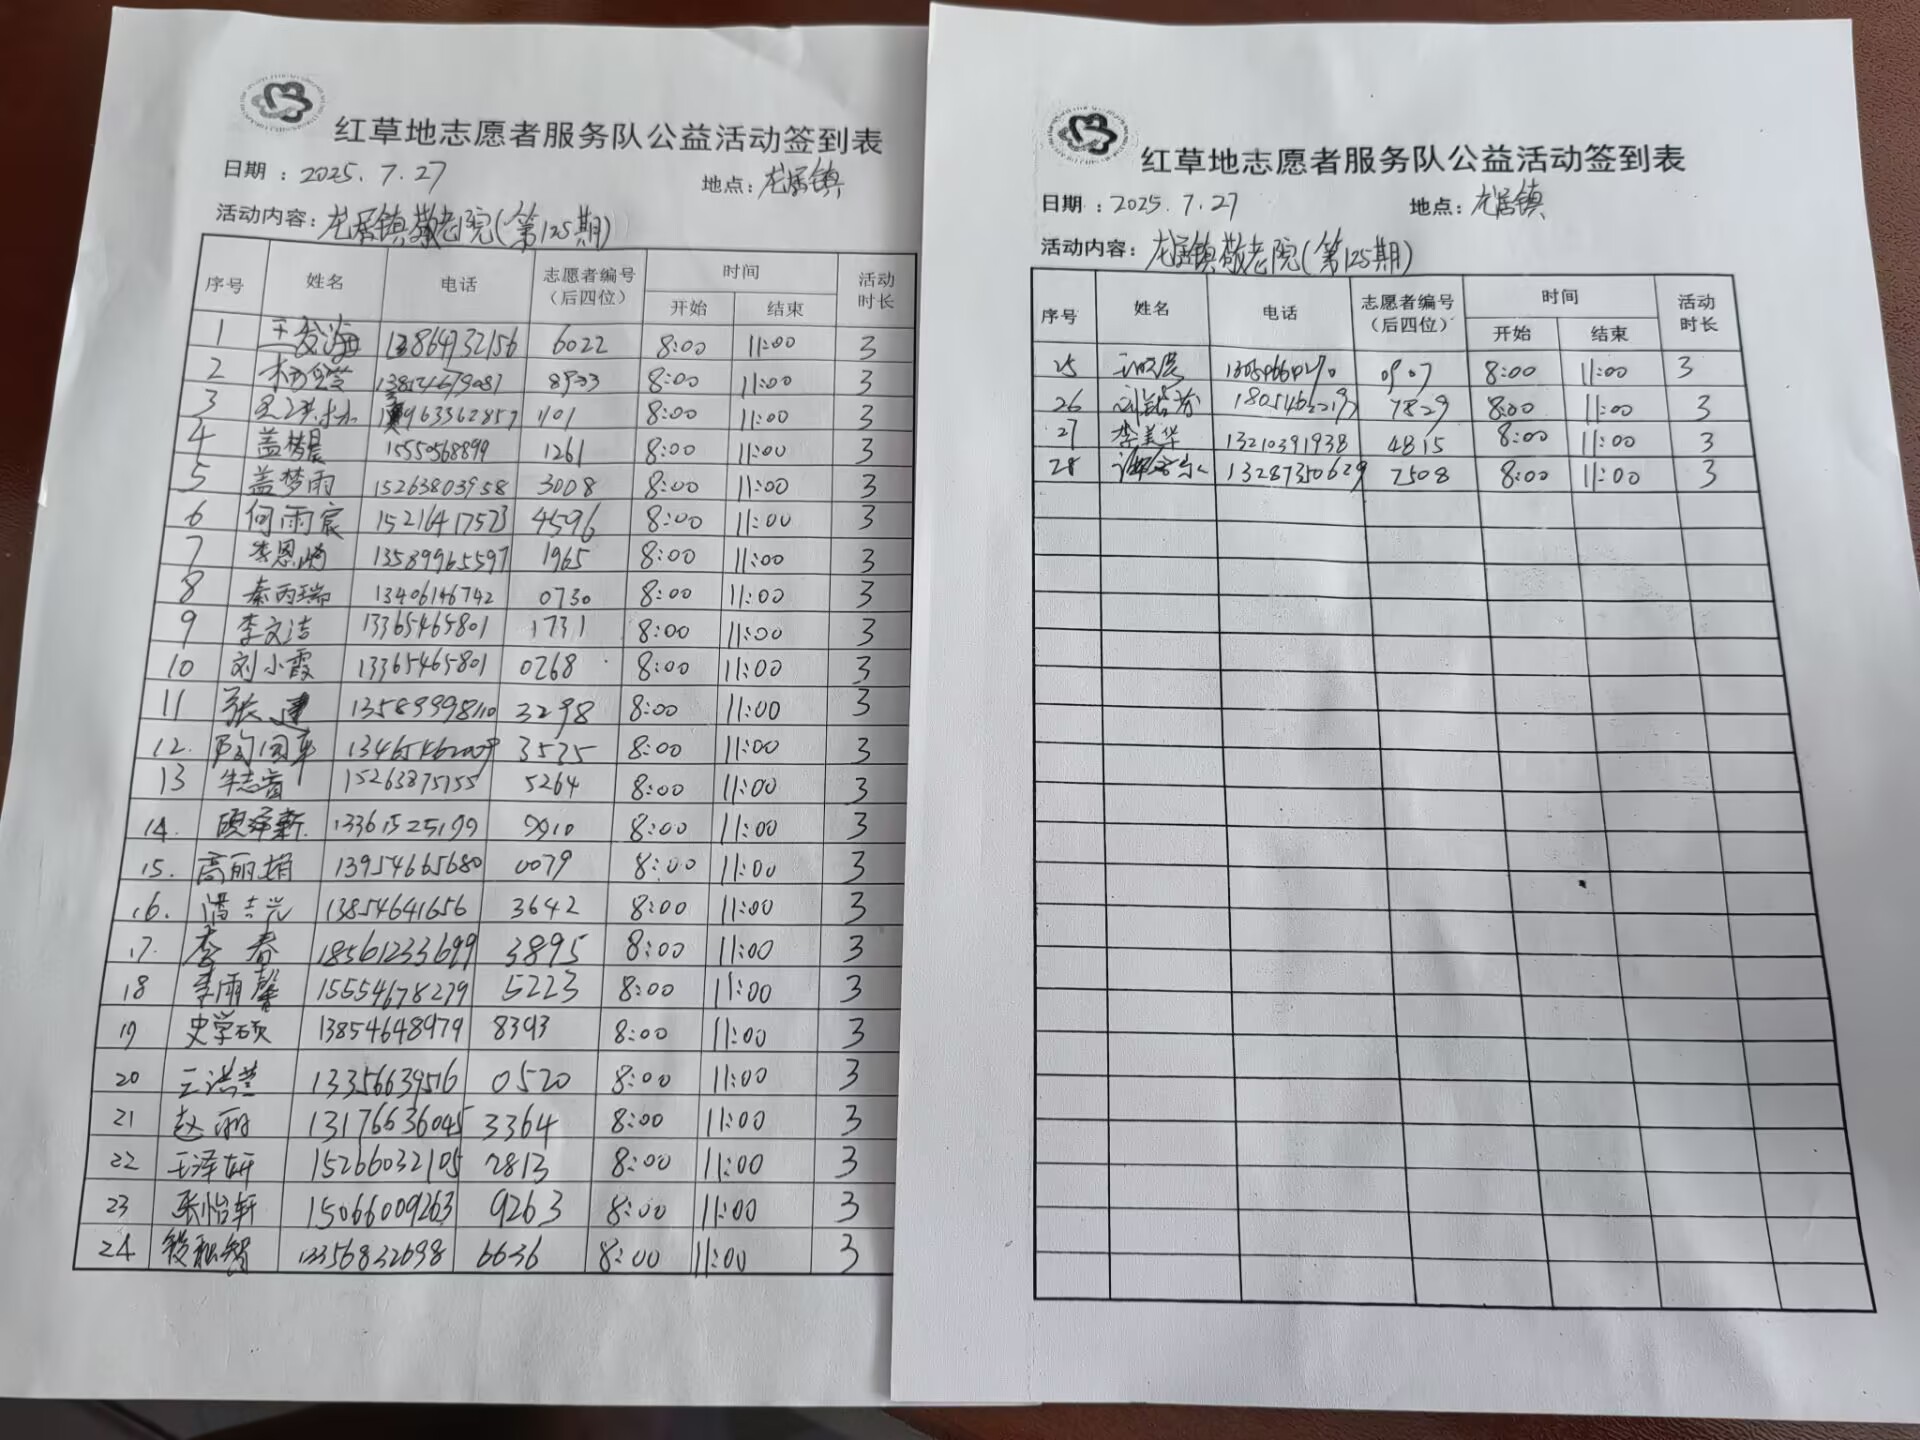 红草地志愿者服务队公益活动签到表
日期：2025.7.27 地点：龙居镇
活动内容：龙居镇敬老院(第125期)
序号 姓名 电话 志愿者编号（后四位） 时间 开始 结束 活动时长
1 6022 8:00 11:00 3
2 8:00 11:00 3
3 1101 8:00 11:00 3
4 盖梦晨 15550568899 1261 8:00 11:00 3
5 盖梦雨 15263803958 3008 8:00 11:00 3
6 何雨宸 15216417523 4596 8:00 11:00 3
7 13589965597 1965 8:00 11:00 3
8 秦丙瑞 13406146742 0730 8:00 11:00 3
9 李文洁 13365465801 1731 8:00 11:00 3
10 刘小霞 13365465801 0268 8:00 11:00 3
11 张建 13589998110 3298 8:00 11:00 3
12. 3525 8:00 11:00 3
13 15263875155 5264 8:00 11:00 3
14. 13361525199 8:00 11:00 3
15. 高丽娟 13954665680 0079 8:00 11:00 3
16. 13854641656 3642 8:00 11:00 3
17. 李春 18561233699 3895 8:00 11:00 3
18 李雨馨 15554678279 5223 8:00 11:00 3
19 史学硕 13854648979 8393 8:00 11:00 3
20 13356639516 0520 8:00 11:00 3
21 赵丽 13176636045 3364 8:00 11:00 3
22 王泽妍 15266032105 2813 8:00 11:00 3
23 张怡轩 15066009263 9263 8:00 11:00 3
24 13356832698 6636 8:00 11:00 3
红草地志愿者服务队公益活动签到表
日期：2025.7.27 地点：龙居镇
活动内容：龙居镇敬老院(第125期)
序号 姓名 电话 志愿者编号（后四位） 时间 开始 结束 活动时长
25 0907 8:00 11:00 3
26 7829 8:00 11:00 3
27 李美华 13210391938 4815 8:00 11:00 3
28 13287350629 2508 8:00 11:00 3